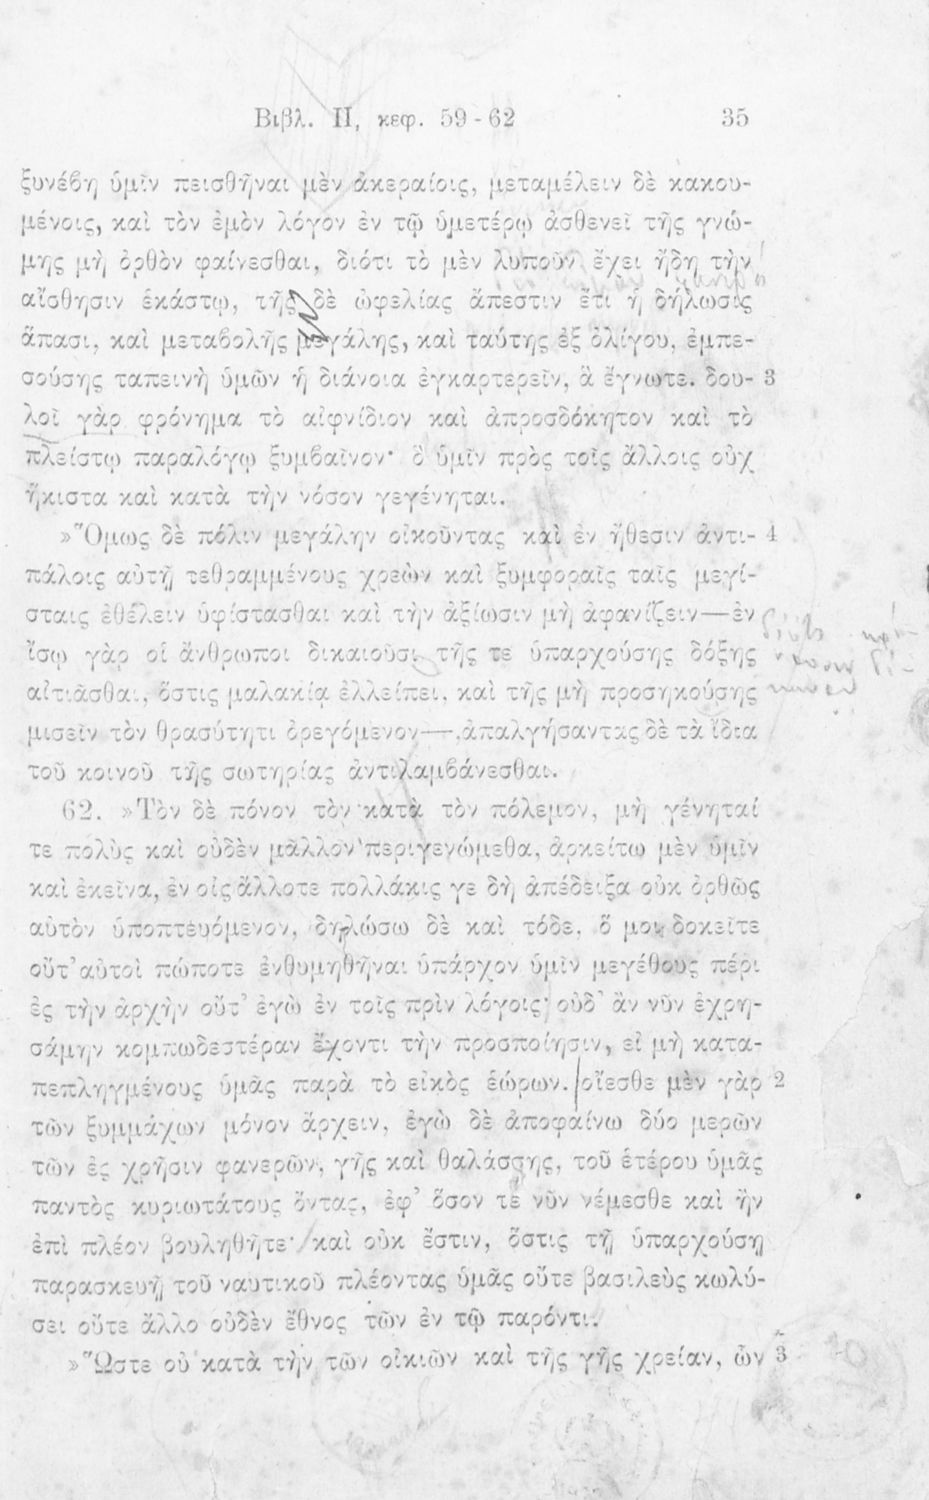 Βιβλ. ΙΙ, κεφ. 59-62 35
ξυνέβη ὑμῖν πεισθῆναι μὲν ἀκεραίοις, μεταμέλειν δὲ κακου-
μένοις, καὶ τὸν ἐμὸν λόγον ἐν τῷ ὑμετέρῳ ἀσθενεῖ τῆς γνώ-
μης μὴ ὀρθὸν φαίνεσθαι, διότι τὸ μὲν λυποῦν ἔχει ἤδη τὴν
αἴσθησιν ἑκάστῳ, τῆς δὲ ὠφελίας ἄπεστιν ἔτι ἡ δήλωσις
ἅπασι, καὶ μεταβολῆς μεγάλης, καὶ ταύτης ἐξ ὀλίγου, ἐμπε-
σούσης ταπεινὴ ὑμῶν ἡ διάνοια ἐγκαρτερεῖν, ἃ ἔγνωτε. δου- 3
λοῖ γὰρ φρόνημα τὸ αἰφνίδιον καὶ ἀπροσδόκητον καὶ τὸ
πλείστῳ παραλόγῳ ξυμβαῖνον· ὃ ὑμῖν πρὸς τοῖς ἄλλοις οὐχ
ἥκιστα καὶ κατὰ τὴν νόσον γεγένηται.
»Ὅμως δὲ πόλιν μεγάλην οἰκοῦντας καὶ ἐν ἤθεσιν ἀντι- 4
πάλοις αὐτῇ τεθραμμένους χρεὼν καὶ ξυμφοραῖς ταῖς μεγί-
σταις ἐθέλειν ὑφίστασθαι καὶ τὴν ἀξίωσιν μὴ ἀφανίζειν—ἐν
ἴσῳ γὰρ οἱ ἄνθρωποι δικαιοῦσι τῆς τε ὑπαρχούσης δόξης
αἰτιᾶσθαι, ὅστις μαλακίᾳ ἐλλείπει, καὶ τῆς μὴ προσηκούσης
μισεῖν τὸν θρασύτητι ὀρεγόμενον—ἀπαλγήσαντας δὲ τὰ ἴδια
τοῦ κοινοῦ τῆς σωτηρίας ἀντιλαμβάνεσθαι.
62. »Τὸν δὲ πόνον τὸν κατὰ τὸν πόλεμον, μὴ γένηταί
τε πολὺς καὶ οὐδὲν μᾶλλον περιγενώμεθα, ἀρκείτω μὲν ὑμῖν
καὶ ἐκεῖνα, ἐν οἷς ἄλλοτε πολλάκις γε δὴ ἀπέδειξα οὐκ ὀρθῶς
αὐτὸν ὑποπτευόμενον, δηλώσω δὲ καὶ τόδε, ὅ μοι δοκεῖτε
οὔτ' αὐτοὶ πώποτε ἐνθυμηθῆναι ὑπάρχον ὑμῖν μεγέθους πέρι
ἐς τὴν ἀρχὴν οὔτ' ἐγὼ ἐν τοῖς πρὶν λόγοις· οὐδ' ἂν νῦν ἐχρη-
σάμην κομπωδεστέραν ἔχοντι τὴν προσποίησιν, εἰ μὴ κατα-
πεπληγμένους ὑμᾶς παρὰ τὸ εἰκὸς ἑώρων. οἴεσθε μὲν γὰρ 2
τῶν ξυμμάχων μόνον ἄρχειν, ἐγὼ δὲ ἀποφαίνω δύο μερῶν
τῶν ἐς χρῆσιν φανερῶν, γῆς καὶ θαλάσσης, τοῦ ἑτέρου ὑμᾶς
παντὸς κυριωτάτους ὄντας, ἐφ' ὅσον τε νῦν νέμεσθε καὶ ἢν
ἐπὶ πλέον βουληθῆτε· καὶ οὐκ ἔστιν, ὅστις τῇ ὑπαρχούσῃ
παρασκευῇ τοῦ ναυτικοῦ πλέοντας ὑμᾶς οὔτε βασιλεὺς κωλύ-
σει οὔτε ἄλλο οὐδὲν ἔθνος τῶν ἐν τῷ παρόντι.
»Ὥστε οὐ κατὰ τὴν τῶν οἰκιῶν καὶ τῆς γῆς χρείαν, ὧν 3